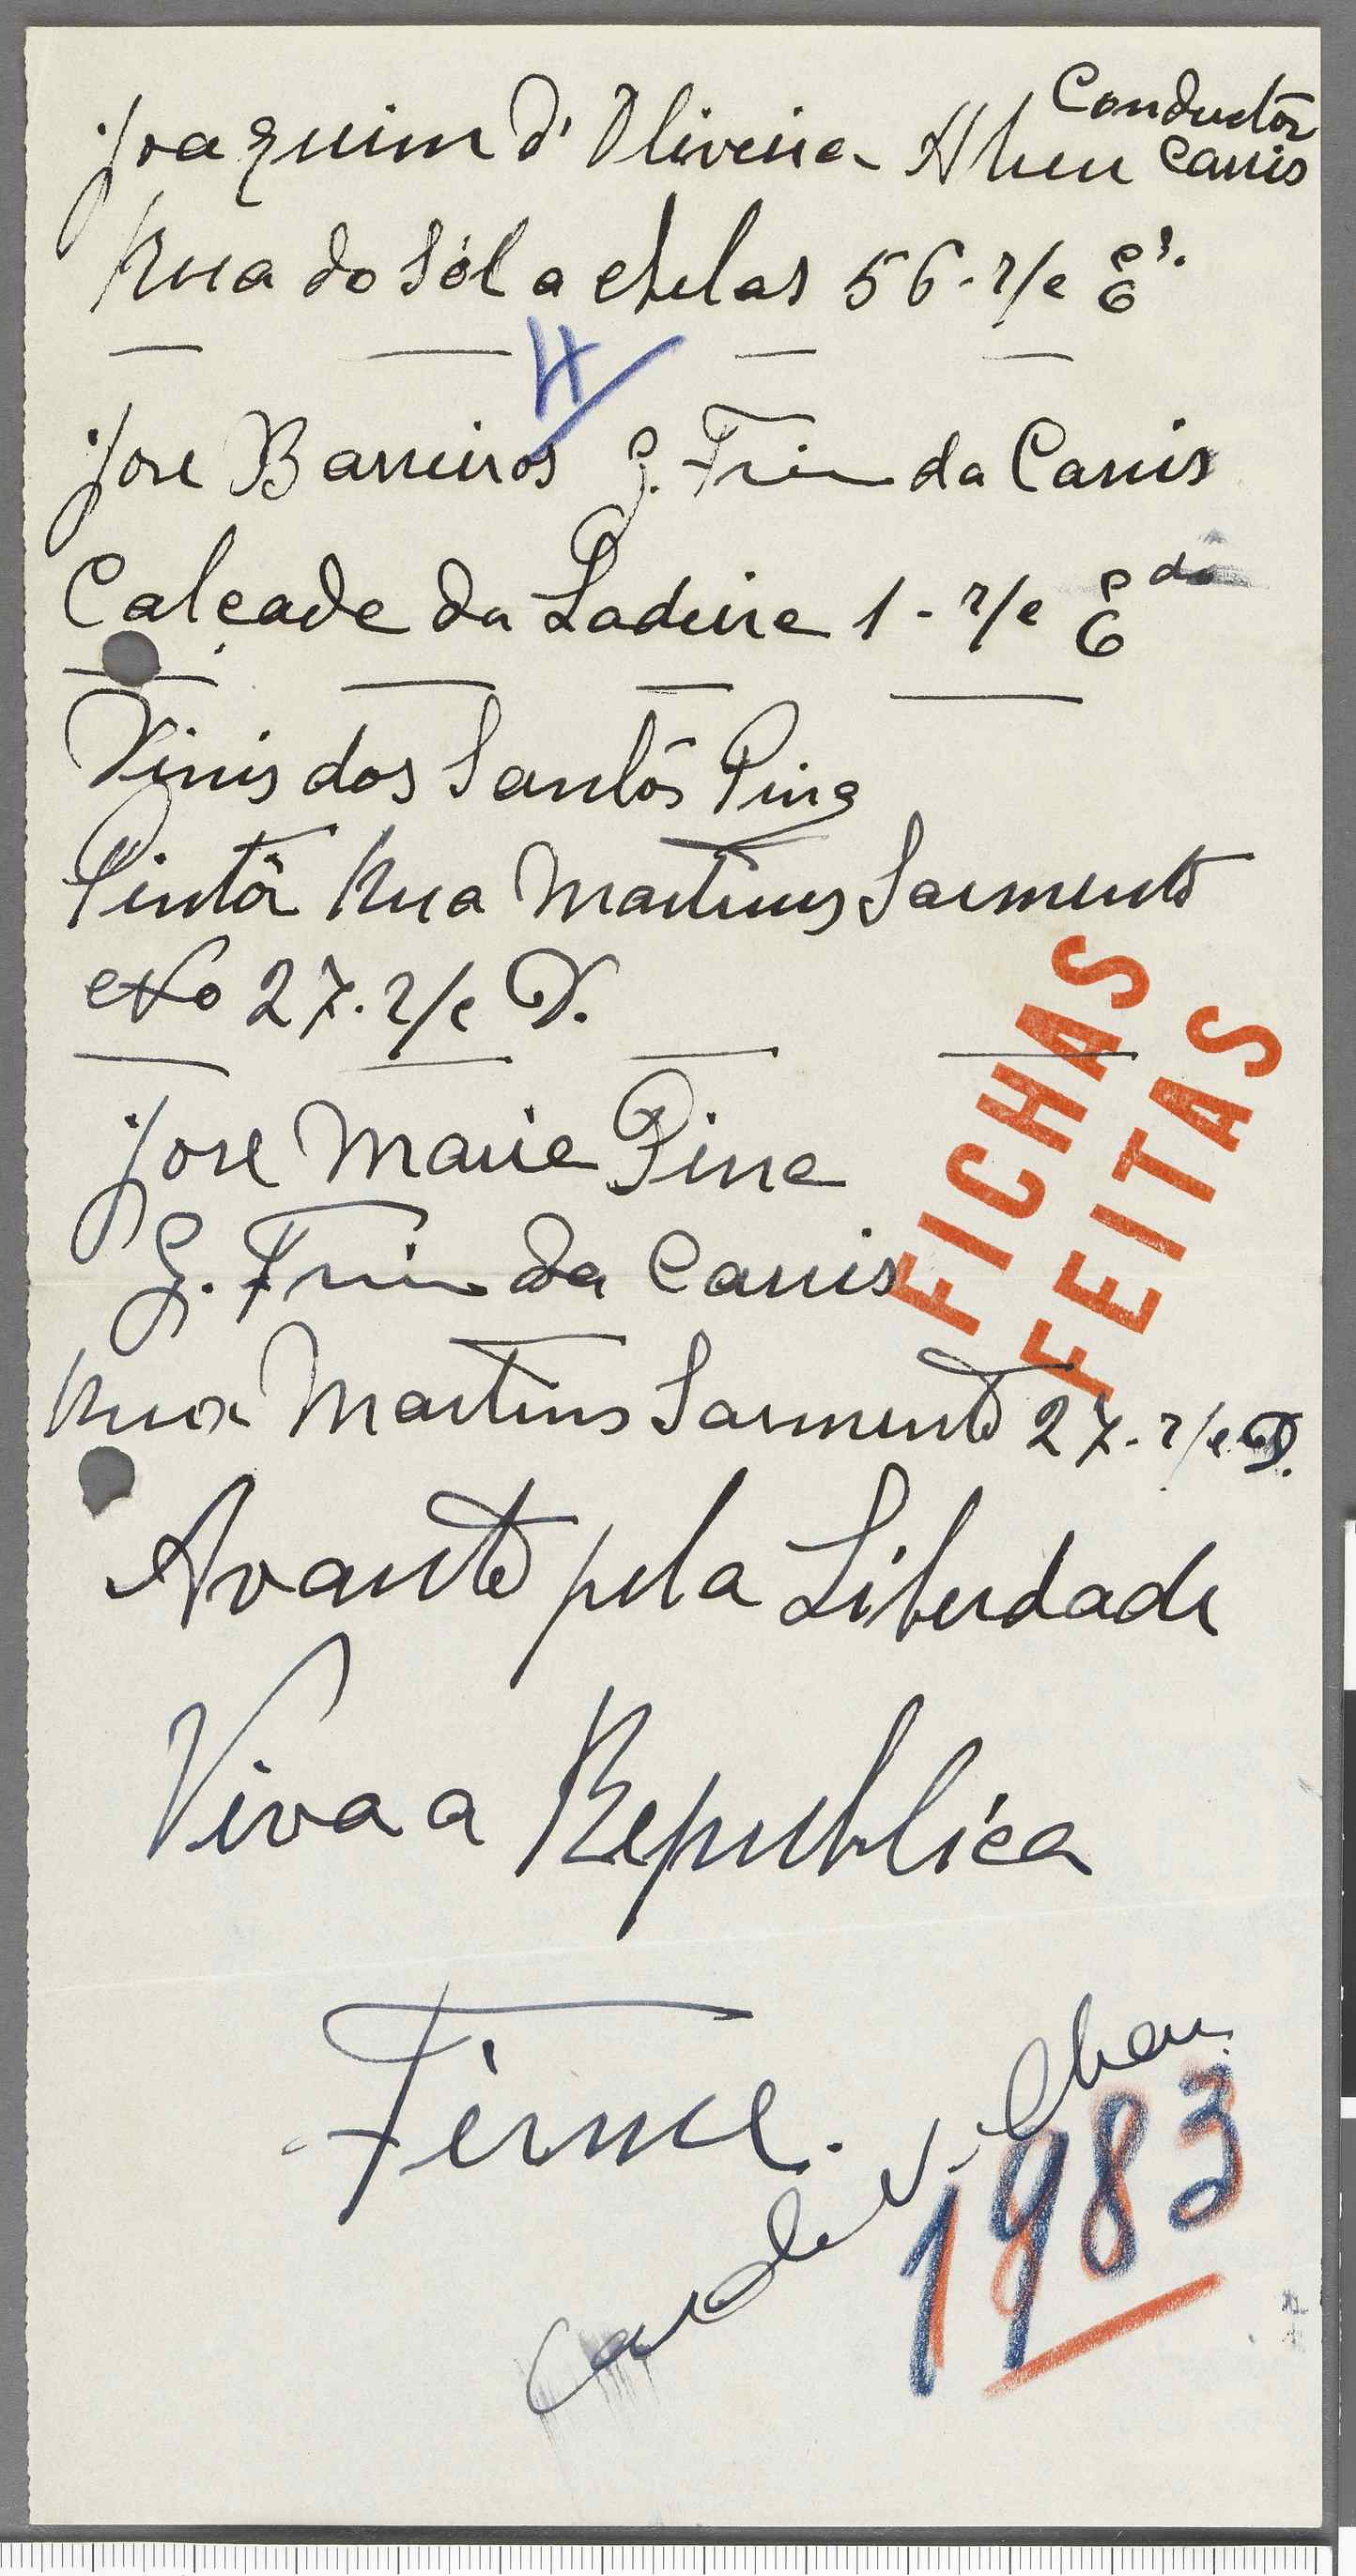 Joaquim d'Oliveira Abreu Conductor Carris
Rua do Sól a Chelas 56-r/c E
José Barreiros G. Freio da Carris
Calçada da Ladeira 1-r/c E
dos Santos Pina
Pintôr Rua Martins Sarmento
No 27-r/c D.
José Maria Pina
G. Freio da Carris
Rua Martins Sarmento 27-r/c D.
FICHAS
FEITAS
Avante pela Liberdade
Viva a Republica
Firme.
1983